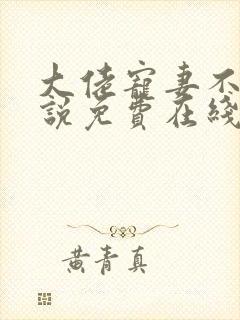 大佬寵妻不
說免費在綫
黃青真